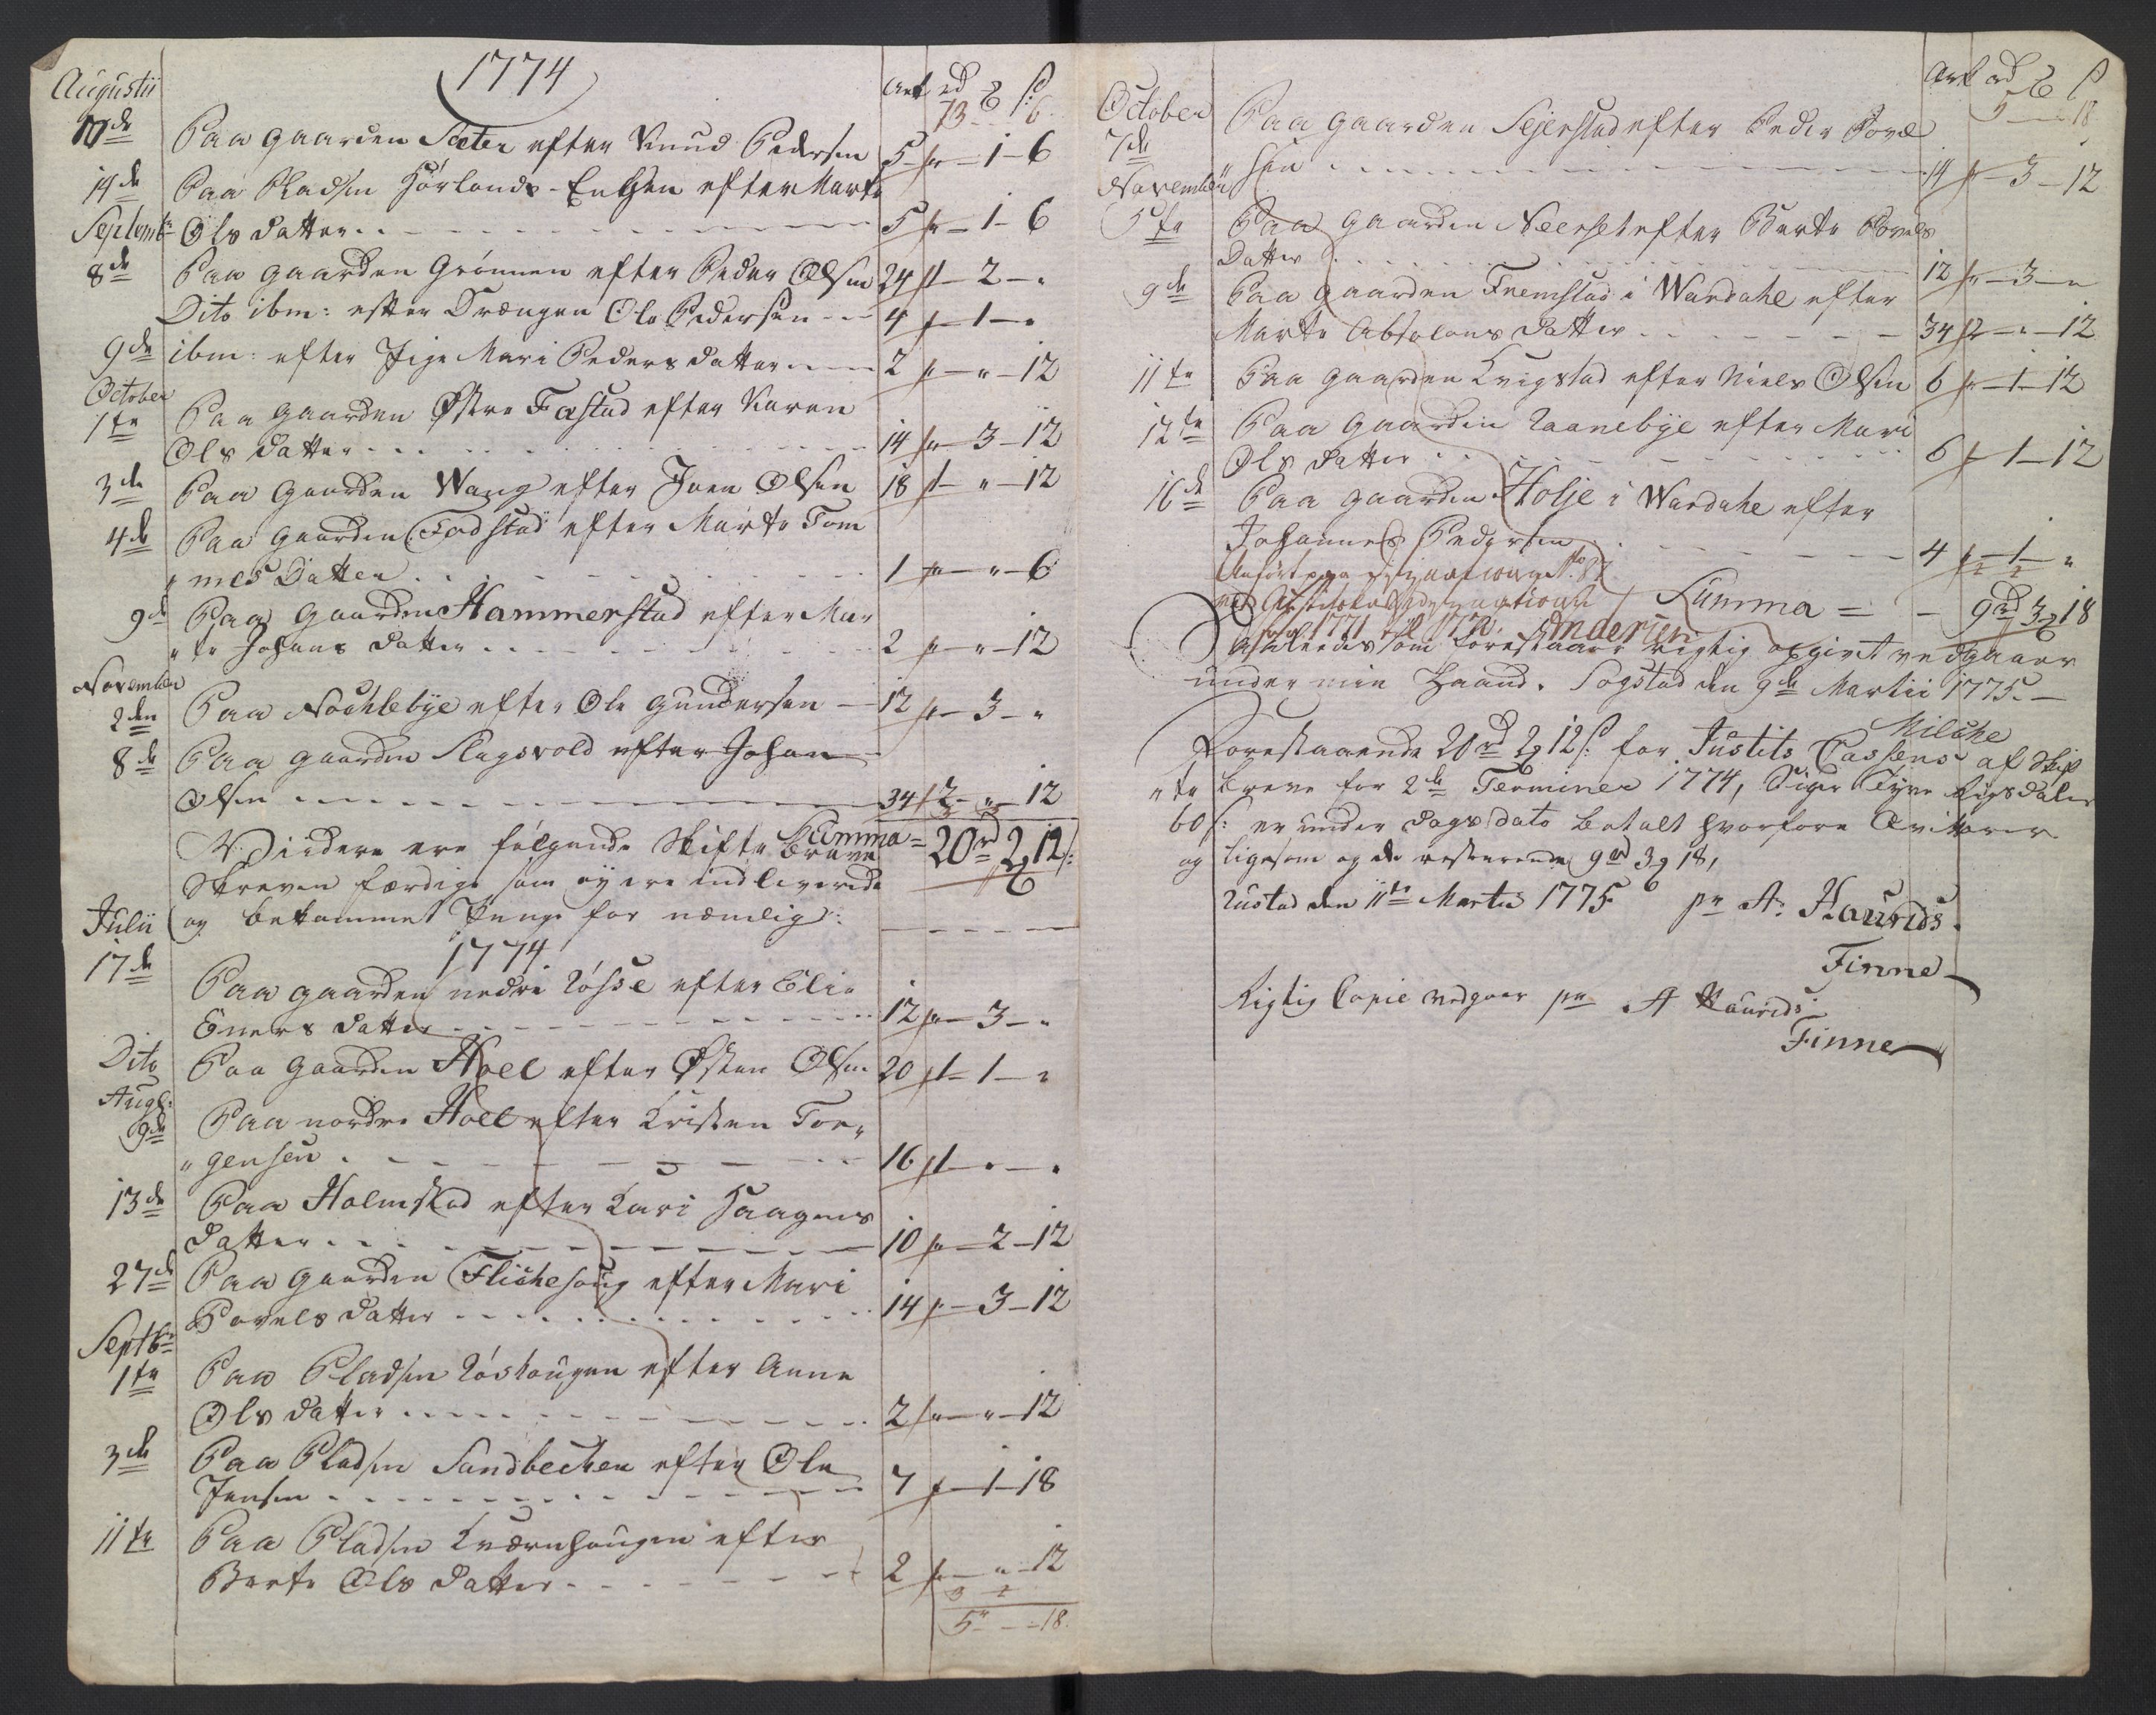 1774
Ark rd ℥ ß
13 - " 6
Augustii
10de Paa gaarden Sæter efter Knud Pedersen 5 " - 1 - 6
14de Paa Pladsen Hörlands-Engen efter Marte
Septembr Ols datter 5 " - 1 - 6
8de Paa gaarden Grönnen efter Peder Olsen 24 1 - 2 - "
Dito ibm: efter Drængen Ole Pedersen 4 " - 1 - "
9de ibm: efter Pige Mari Peders datter 2 " - " - 12
October
1te Paa gaarden Östre Fostad efter Karen
Ols datter 14 " - 3 - 12
3de Paa gaarden Wang efter Joen Olsen 18 1 - " - 12
4de Paa gaarden Fodstad efter Marte Tom
" mes Datter 1 " - " - 6
9de Paa gaarden Hammerstad efter Mar
" te Johans datter 2 " - " - 12
November
2den Paa Nochlebye efter Ole Gundersen 12 " - 3 - "
8de Paa gaarden Slagsvold efter Johan
Olsen 34 2 - " - 12
Summa = 20rd 2 ℥ 12ß:
Viidere ere fölgende Skifte breve
Skreven færdige som ey ere indleverede
og bekommet Penge for nemlig:
1774
Julii
17de Paa gaarden nedre Rösse efter Elie
Eners datter 12 " - 3 - "
Dito Paa gaarden Hoel efter Östen Olsen 20 1 - 1 - "
Aug:
9de Paa nordre Hoel efter Kristen Tor"
" gensen 16 1 - " - "
13de Paa Holmstad efter Kari Haagens
datter 10 " - 2 - 12
27de Paa gaarden Flichesoug efter Mari
Povels datter 14 " - 3 - 12
Septbr
1te Paa Pladsen Röshougen efter Anne
Ols datter 2 " - " - 12
3de Paa Pladsen Sandbechen efter Ole
Jensen 7 " - 1 - 18
11te Paa Pladsen Kværnhougen efter
Berte Ols datter 2 " - " - 12
5 " - " - 18
Ark rd ℥ ß
5 - " 18
October
7de Paa gaarden Sejerstad efter Peder Povel
" sen 14 " - 3 - 12
November
5te Paa gaarden Neerset efter Berte Povels
Datter 12 " - 3 - "
9de Paa gaarden Fremstad i Wardahl efter
Marte Absolons datter 34 2 - " - 12
11te Paa gaarden Krigstad efter Niels Olsen 6 " - 1 - 12
12te Paa gaarden Raanebye efter Mari
Ols datter 6 " - 1 - 12
16de Paa gaarden Holje i Wardahl efter
Johannes Pedersen 4 " - 1 - "
Anfört paa
Summa = - 9rd 3 ℥ 18
1771 til 1772.
Saaledes som forestaar rigtig opgivet vedgaaer
under min Haand. Sogstad den 9de Martii 1775.
Milche
Forestaaende 20rd 2 ℥ 12ß: for Justits Cassens af Skif
" te breve for 2de Terminer 1774, Siger Tyve Rigsdaler
60ß: er under dags dato betalt hvorfore Qviterer
og ligesom og de resterende 9rd 3 ℥ 18,
Rustad den 11te Martii 1775 pr A: Haurids:
Finne
Rigtig Copie vedgaar pr A Haurids:
Finne